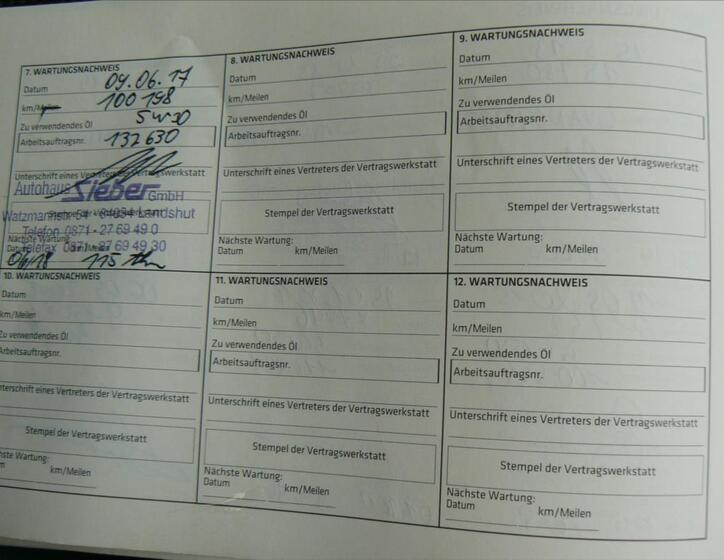 7. WARTUNGSNACHWEIS
Datum 09.06.17
km/Meilen 100 198
Zu verwendendes Öl 5W30
Arbeitsauftragsnr. 132630
Unterschrift eines Vertreters der Vertragswerkstatt
Autohaus Sieber GmbH
Watzmannstr. 54 · 84034 Landshut
Stempel der Vertragswerkstatt
Telefon 0871 - 27 69 49 0
Telefax 0871 - 27 69 49 30
Nächste Wartung:
Datum km/Meilen
06/18
8. WARTUNGSNACHWEIS
Datum
km/Meilen
Zu verwendendes Öl
Arbeitsauftragsnr.
Unterschrift eines Vertreters der Vertragswerkstatt
Stempel der Vertragswerkstatt
Nächste Wartung:
Datum km/Meilen
9. WARTUNGSNACHWEIS
Datum
km/Meilen
Zu verwendendes Öl
Arbeitsauftragsnr.
Unterschrift eines Vertreters der Vertragswerkstatt
Stempel der Vertragswerkstatt
Nächste Wartung:
Datum km/Meilen
10. WARTUNGSNACHWEIS
Datum
km/Meilen
Zu verwendendes Öl
Arbeitsauftragsnr.
Unterschrift eines Vertreters der Vertragswerkstatt
Stempel der Vertragswerkstatt
hste Wartung:
m km/Meilen
11. WARTUNGSNACHWEIS
Datum
km/Meilen
Zu verwendendes Öl
Arbeitsauftragsnr.
Unterschrift eines Vertreters der Vertragswerkstatt
Stempel der Vertragswerkstatt
Nächste Wartung:
Datum km/Meilen
12. WARTUNGSNACHWEIS
Datum
km/Meilen
Zu verwendendes Öl
Arbeitsauftragsnr.
Unterschrift eines Vertreters der Vertragswerkstatt
Stempel der Vertragswerkstatt
Nächste Wartung:
Datum km/Meilen